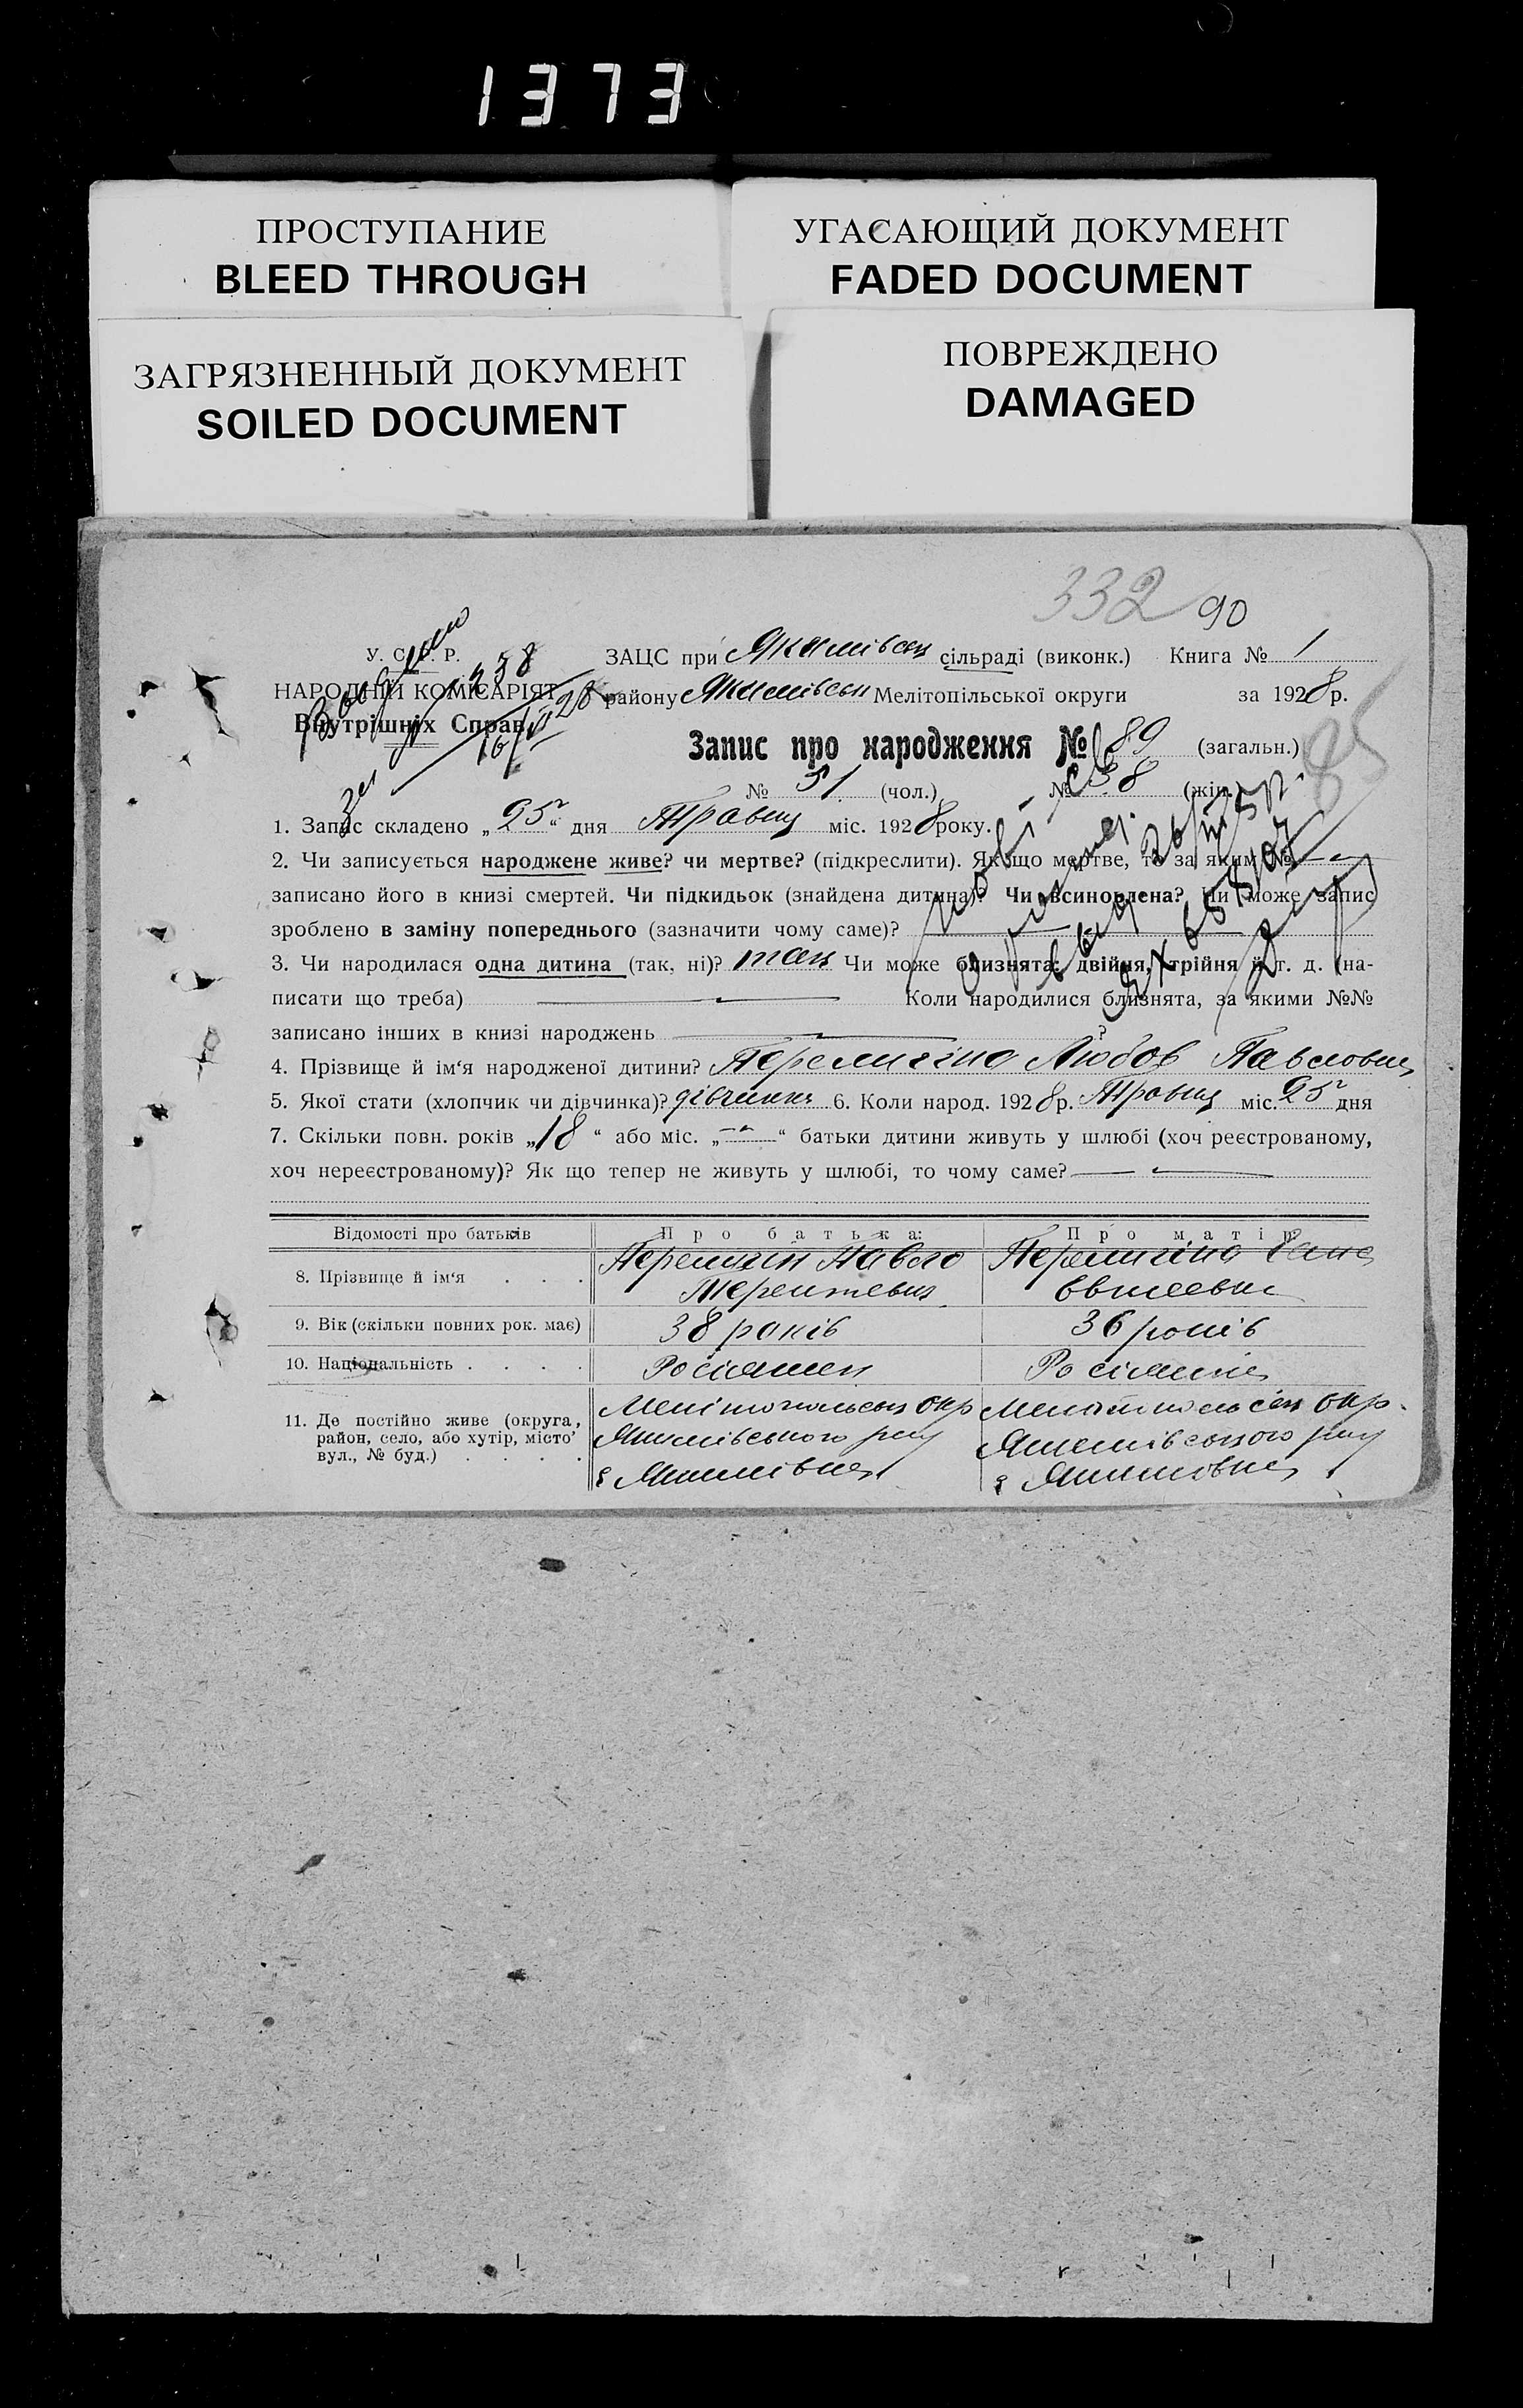 1373
ПРОСТУПАНИЕ
BLEED THROUGH
УГАСАЮЩИЙ ДОКУМЕНТ
FADED DOCUMENT
ЗАГРЯЗНЕННЫЙ ДОКУМЕНТ
SOILED DOCUMENT
ПОВРЕЖДЕНО
DAMAGED
332 90
У. С. Р. Р.
НАРОДНІЙ КОМІСАРІЯТ
Внутрішніх Справ
ЗАЦС при Якимівськ сільраді (виконк.) Книга № 1
району Якимівськ Мелітопільської округи за 1928 р.
Запис про народження № 89 (загальн.)
№ 51 (чол.) № 38 (жін.)
1. Запис складено „25“ дня Травня міс. 1928 року.
2. Чи записується народжене живе? чи мертве? (підкреслити). Як що мертве, то за яким №
записано його в книзі смертей. Чи підкидьок (знайдена дитина)? Чи всиновлена? Чи може запис
зроблено в заміну попереднього (зазначити чому саме)?
3. Чи народилася одна дитина (так, ні)? так Чи може близнята: двійня, трійня й т. д. (на-
писати що треба) Коли народилися близнята, за якими №№
записано інших в книзі народжень ?
4. Прізвище й ім‘я народженої дитини? Перелигіна Любов Павловна
5. Якої стати (хлопчик чи дівчинка)? дівчинка 6. Коли народ. 1928 р. Травня міс. 25 дня
7. Скільки повн. років „18“ або міс. „—“ батьки дитини живуть у шлюбі (хоч реєстрованому,
хоч нереєстрованому)? Як що тепер не живуть у шлюбі, то чому саме?
Відомості про батьків Про батька: Про матір:
8. Прізвище й ім‘я . . . Перелигін Павло Перелигіна
Терентевич
9. Вік (скільки повних рок. має) 38 років 36 років
10. Національність . . . . Росіянин Росіянка
11. Де постійно живе (округа, район, село, або хутір, місто, вул., № буд.) . . . .
Мелітопольськ окр Мелітопольськ окр.
Якимівського рну Якимівського рну
с Якимівка с Якимовка